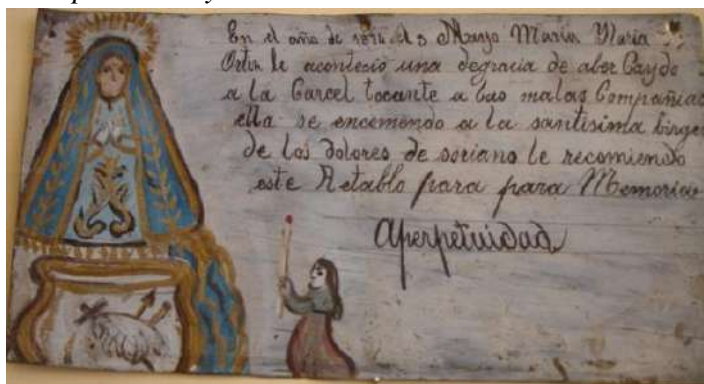 En el año de 1874 el 3 Mayo Maria Ylaria
Ortis le acontecio una degracia de aber Caydo
a la Carcel tocante a las malas Compañias
ella se encomendo a la santisima birgen
de los dolores de soriano le recomiendo
este Retablo para para Memorias
Aperpetuidad